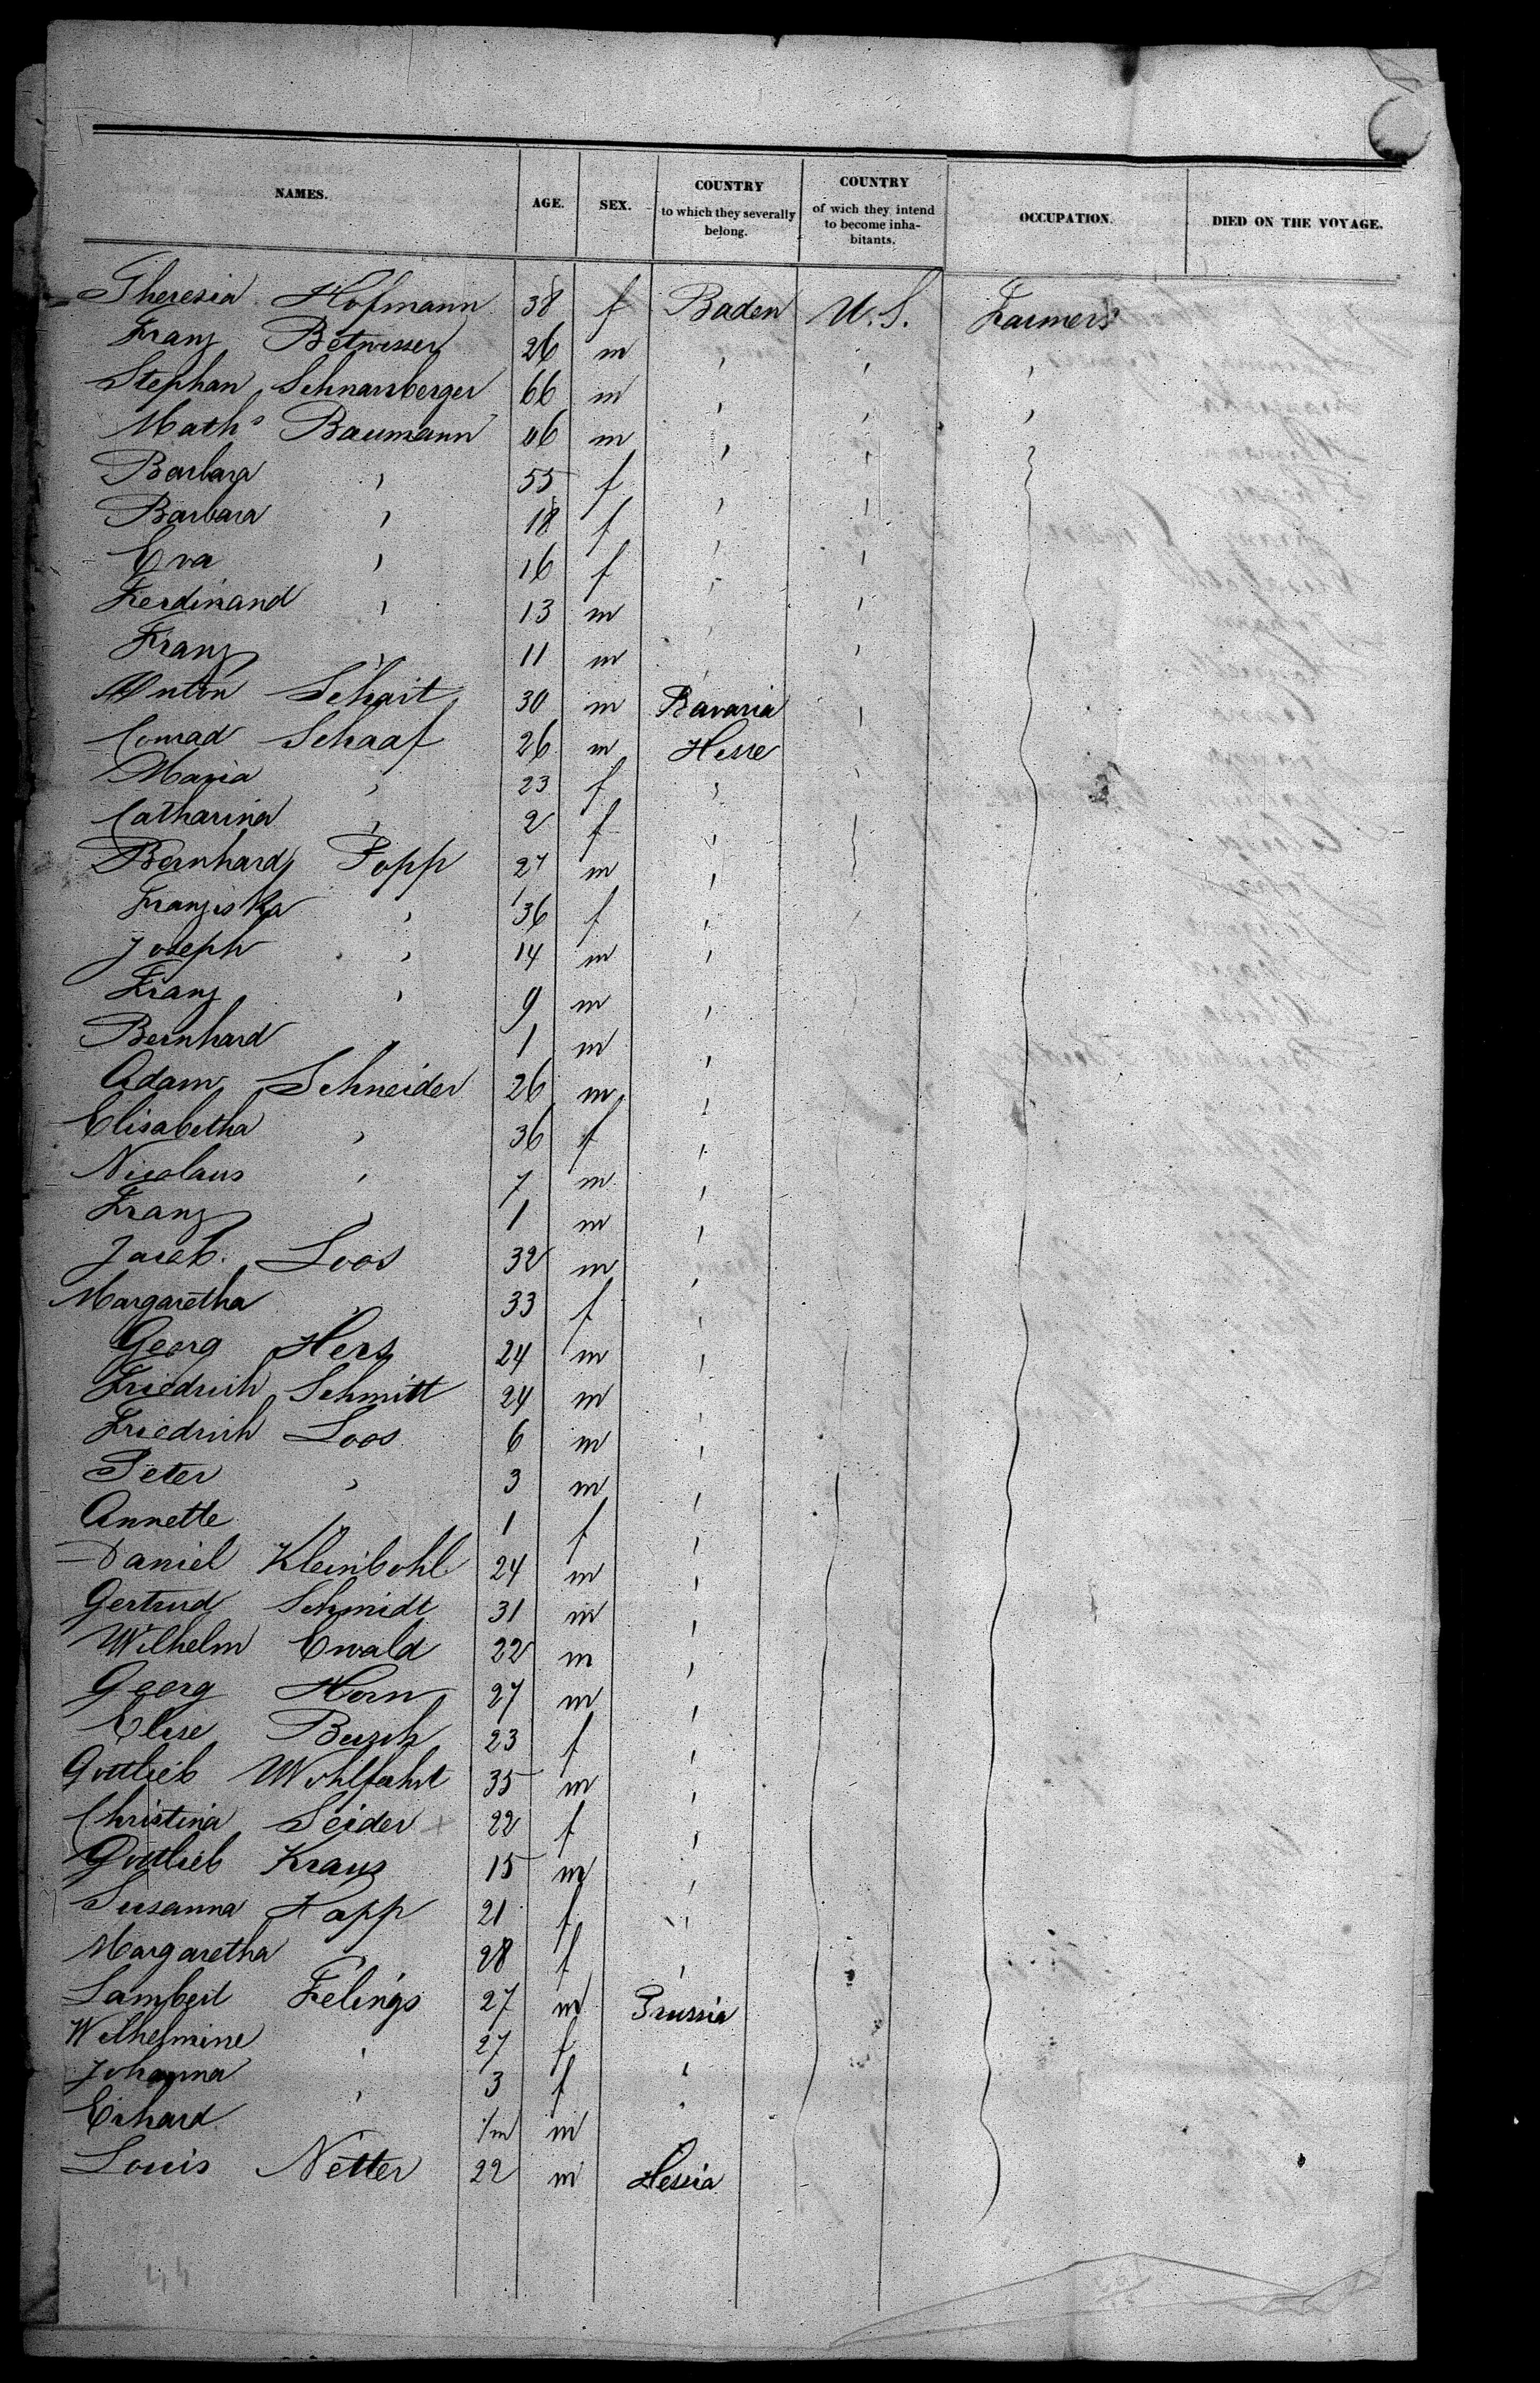 NAMES. AGE. SEX. COUNTRY to which they severally belong. COUNTRY of wich they intend to become inha- bitants. OCCUPATION. DIED ON THE VOYAGE.
Theresia Hofmann 38 f Baden U.S. Farmers
Franz Betwisser 26 m , , ,
Stephan Schnarrberger 66 m , , ,
Maths Baumann 46 m , ,
Barbara , 55 f , ,
Barbara , 18 f , ,
Eva , 16 f , ,
Ferdinand , 13 m , ,
Franz , 11 m , ,
Anton Schait 30 m Bavaria ,
Conrad Schaaf 26 m Hesse
Maria , 23 f ,
Catharina , 2 f ,
Bernhard Popp 27 m ,
Franziska , 36 f ,
Joseph , 14 m ,
Franz , 9 m ,
Bernhard 1 m ,
Adam Schneider 26 m ,
Elisabetha , 36 f ,
Nicolaus , 7 m ,
Franz , 1 m ,
Jacob Loos 32 m ,
Margaretha , 33 f ,
Georg Herz 24 m ,
Friedrich Schmitt 24 m ,
Friedrich Loos 6 m ,
Peter , 3 m ,
Annette , 1 f ,
Daniel Kleinbohl 24 m ,
Gertrud Schmidt 31 m ,
Wilhelm Ewald 22 m ,
Georg Horn 27 m ,
Elise Busch 23 f ,
Gottlieb Wohlfahrt 35 m ,
Christina Seider 22 f ,
Gottlieb Kraus 15 m ,
Susanna Kapp 21 f ,
Margaretha , 28 f ,
Lambert Felings 27 m Prussia
Wilhelmine , 27 f ,
Johanna , 3 f ,
Erhard , 1/m m
Louis Netter 22 m Hessia
44